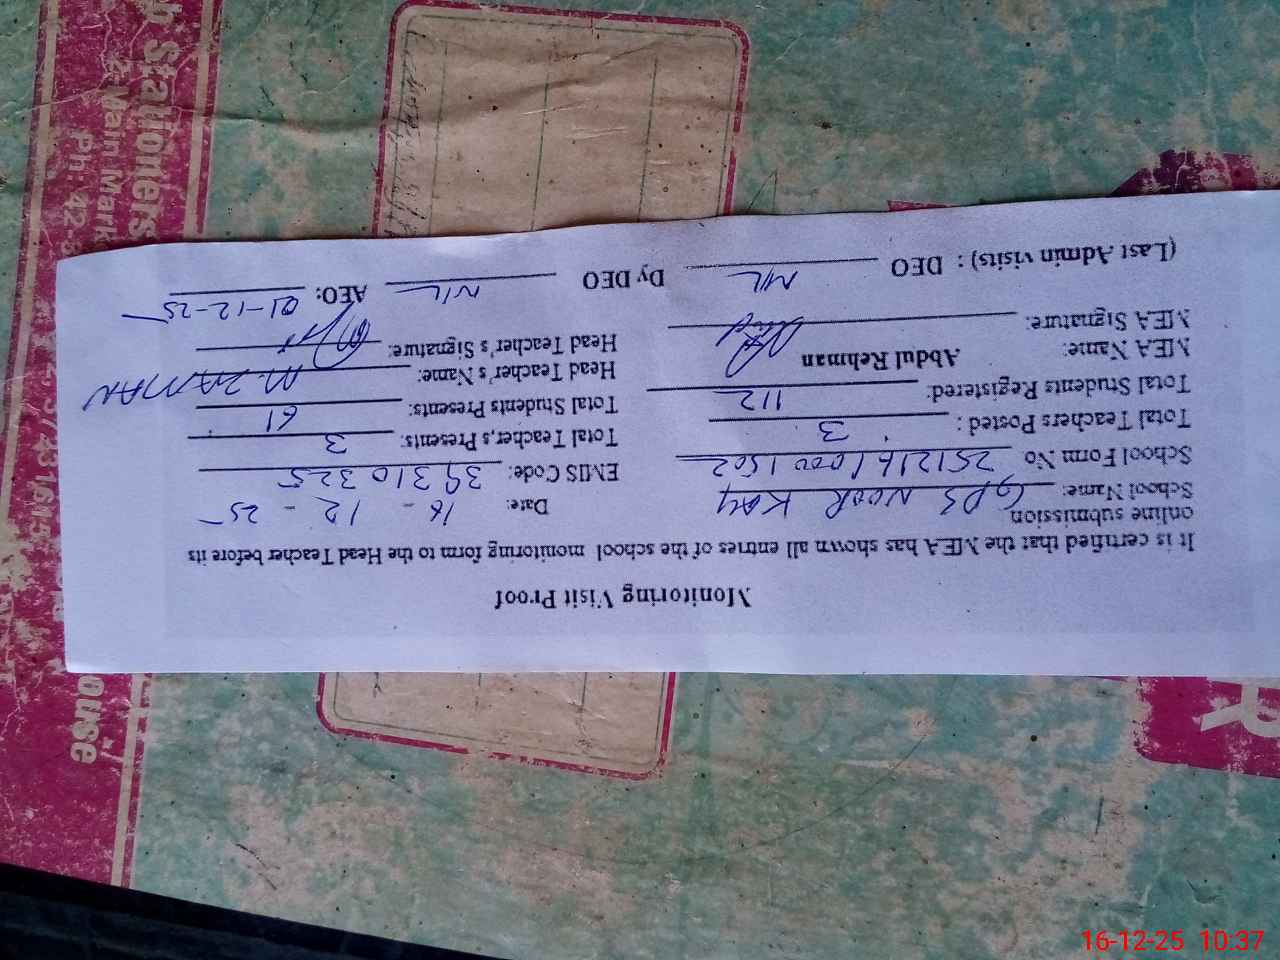 Monitoring Visit Proof
It is certified that the MEA has shown all entries of the school monitoring form to the Head Teacher before its
online submission
School Name: GPS NOOR KAY Date: 16 - 12 - 25
School Form No 25121610001502 EMIS Code: 39310325
Total Teachers Posted : 3 Total Teacher,s Presents: 3
Total Students Registered: 112 Total Students Presents: 61
MEA Name: Abdul Rehman Head Teacher's Name: M. ZAMAN
MEA Signature: Head Teacher's Signature:
(Last Admin visits) : DEO NIL Dy DEO NIL AEO: 01-12-25
Stationers
2-Main Mark
Ph: 42-
ouse
R
16-12-25 10:37